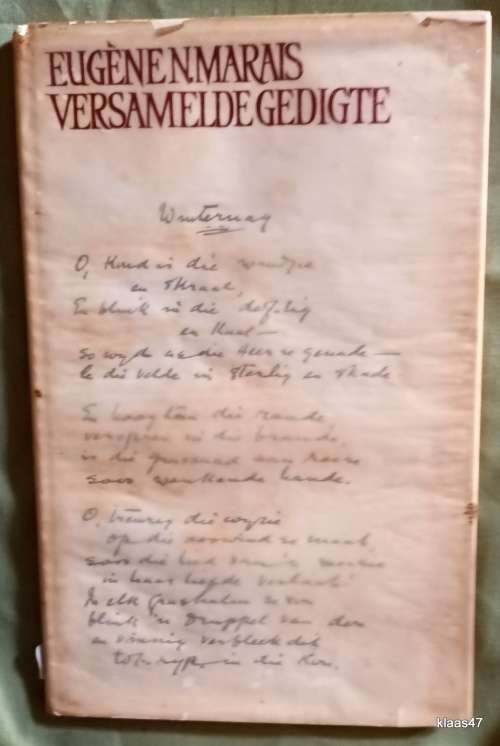 EUGÈNE N. MARAIS
VERSAMELDE GEDIGTE
Winternag
O, Koud is die windjie
en skraal,
En blink in die dof-lig
en Kaal—
so wyd as die Heer se genade—
le die velde in sterlig en skade
En hoog in die rande
versprei in die brande,
is die grassaad aan roere
soos wenkende hande.
O, treurig die wysie
op die ooswind se maat,
soos die lied van 'n meisie
in haar liefde verlaat.
In elk grashalm se vou
blink 'n druppel van dou
en vinnig verbleek dit
tot ryp in die Kou.
klaas47